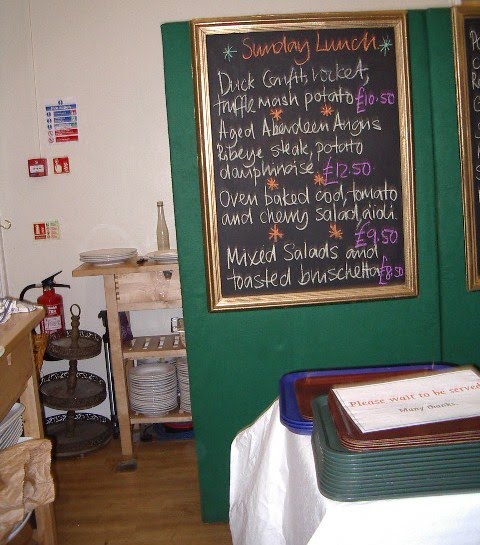 Sunday Lunch
Duck Confit, rocket,
truffle mash potato £10.50
Aged Aberdeen Angus
Ribeye steak, potato
dauphinoise £12.50
Oven baked cod, tomato
and cherry salad, aioli.
£9.50
Mixed Salads and
toasted bruschetta £8.50
Please wait to be served
Many thanks.